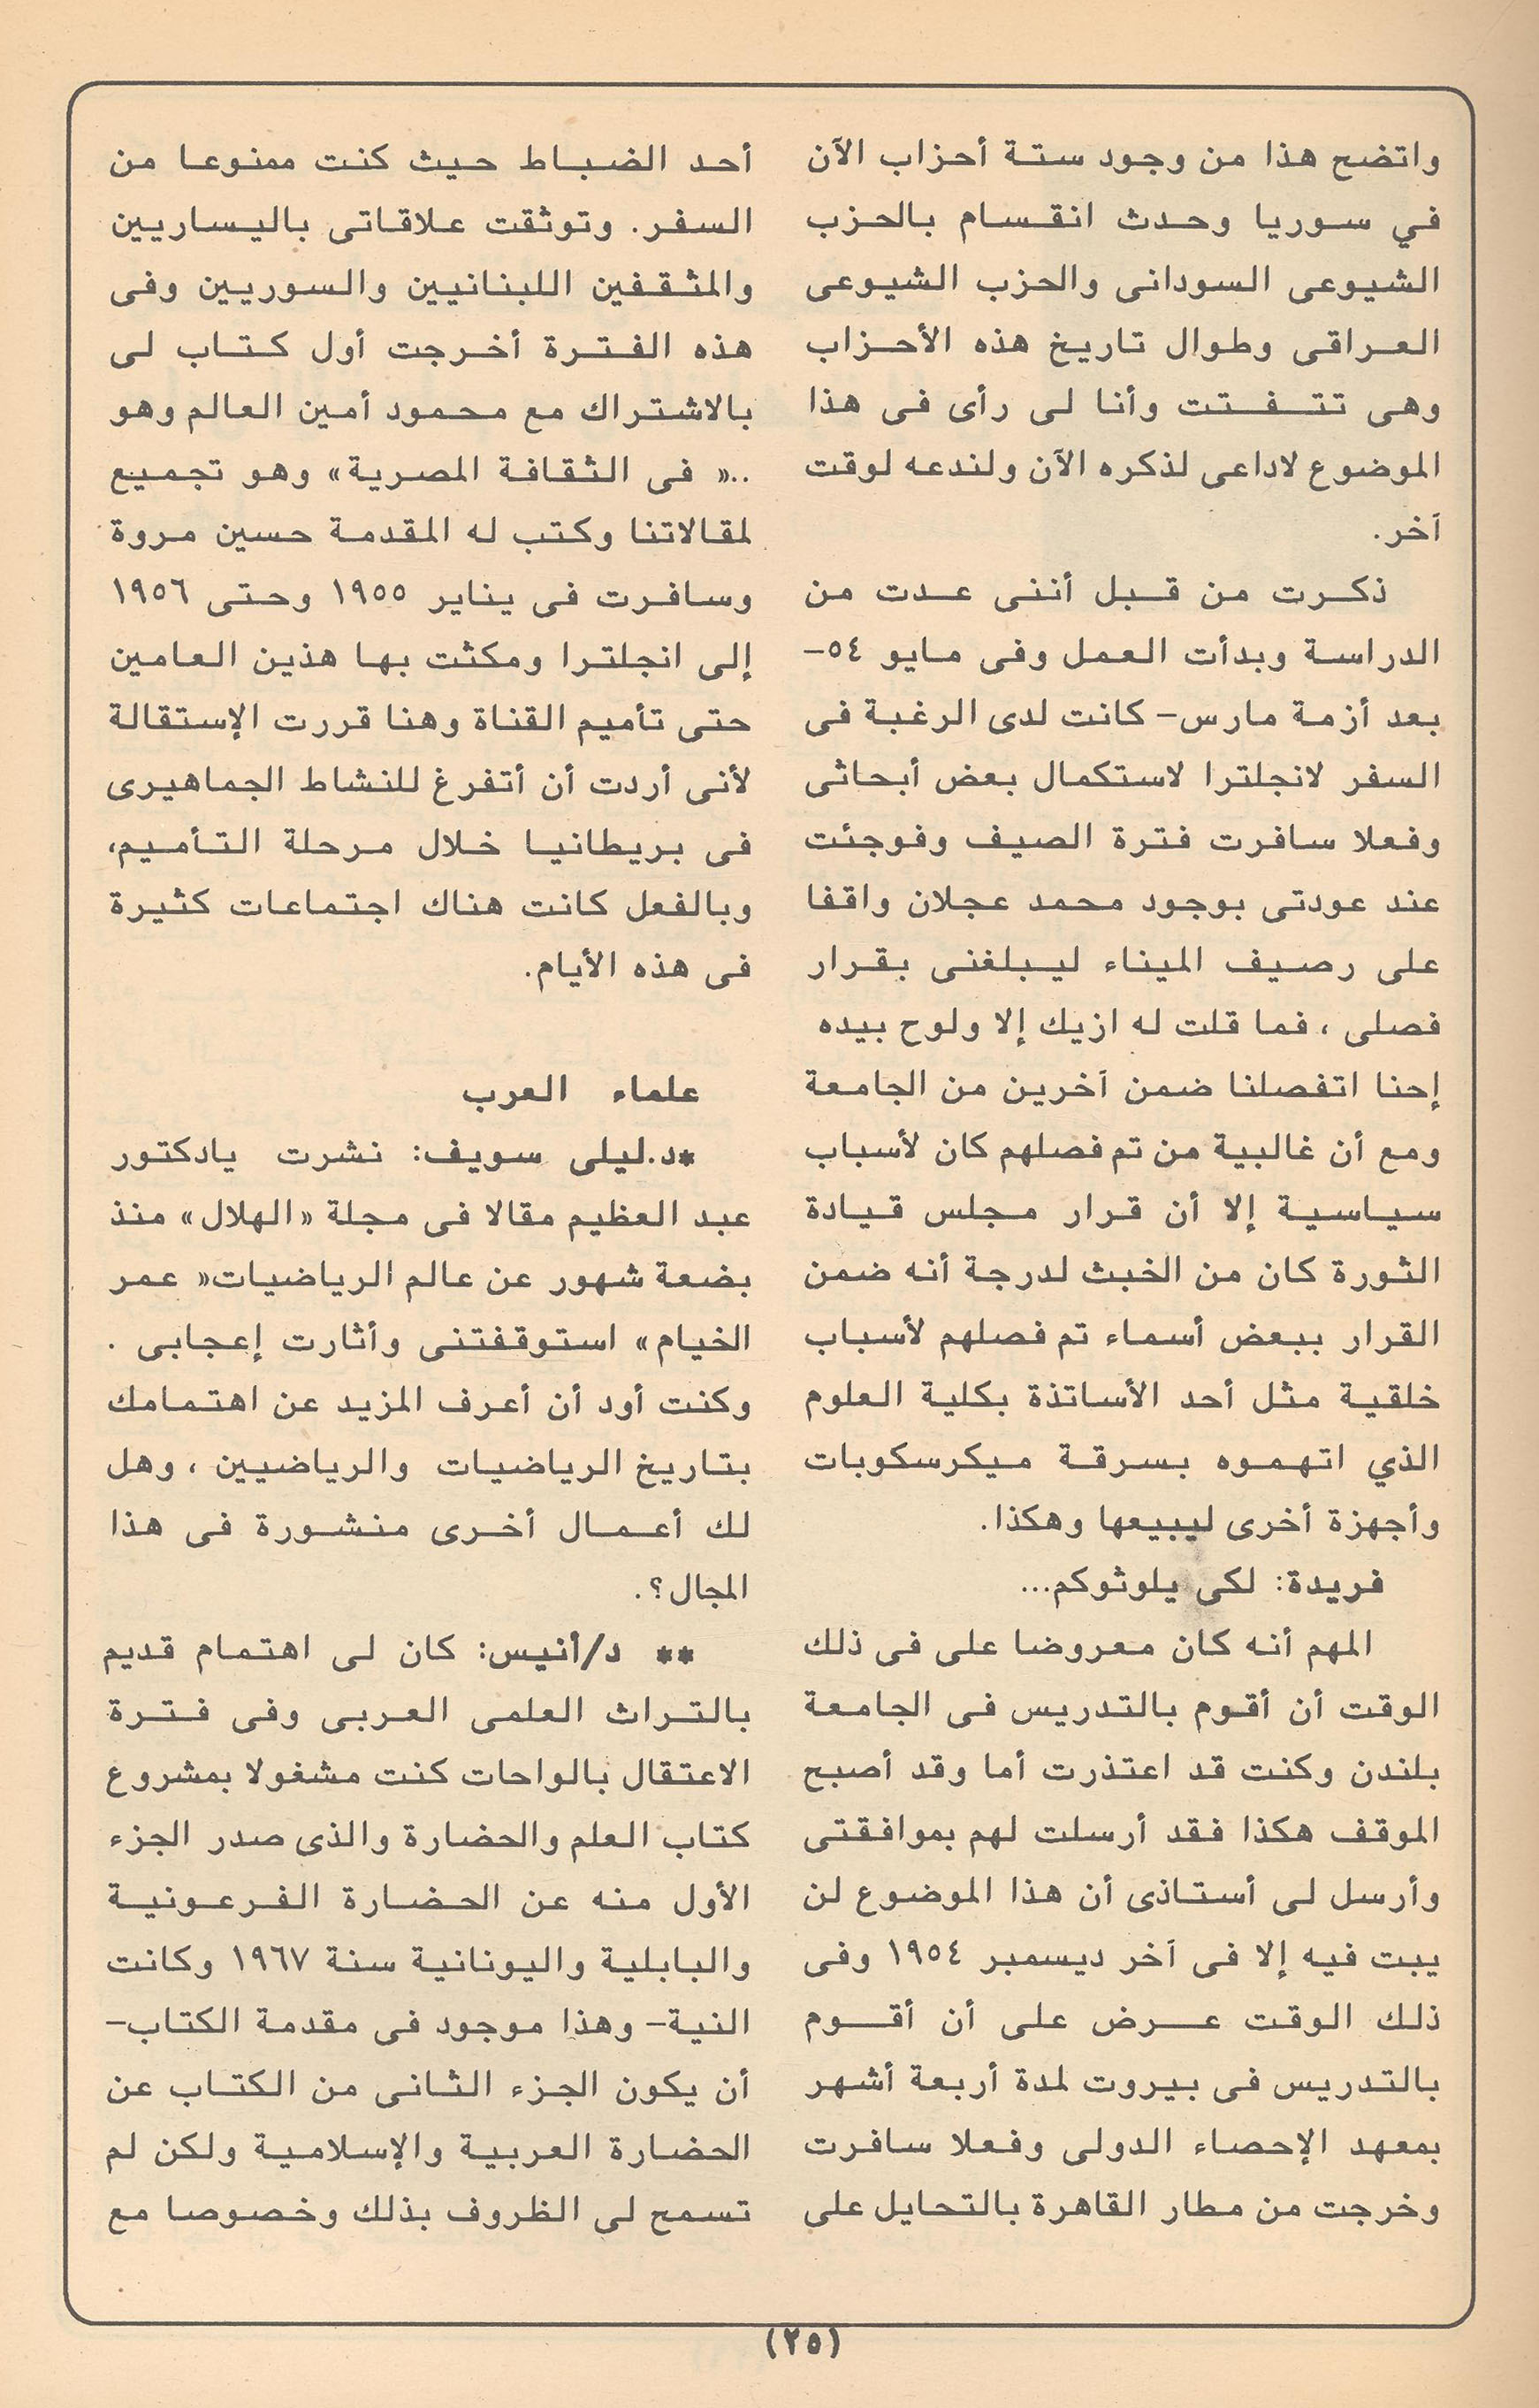 واتضح هذا من وجود ستة أحزاب الآن
في سوريا وحدث انقسام بالحزب
الشيوعى السودانى والحزب الشيوعى
العراقى وطوال تاريخ هذه الأحزاب
وهى تتفتت وأنا لى رأى فى هذا
الموضوع لاداعى لذكره الآن ولندعه لوقت
آخر.
ذكرت من قبل أننى عدت من
الدراسة وبدأت العمل وفى مايو ٥٤-
بعد أزمة مارس- كانت لدى الرغبة فى
السفر لانجلترا لاستكمال بعض أبحاثى
وفعلا سافرت فترة الصيف وفوجئت
عند عودتى بوجود محمد عجلان واقفا
على رصيف الميناء ليبلغنى بقرار
فصلى ، فما قلت له ازيك إلا ولوح بيده
إحنا اتفصلنا ضمن آخرين من الجامعة
ومع أن غالبية من تم فصلهم كان لأسباب
سياسية إلا أن قرار مجلس قيادة
الثورة كان من الخبث لدرجة أنه ضمن
القرار ببعض أسماء تم فصلهم لأسباب
خلقية مثل أحد الأساتذة بكلية العلوم
الذي اتهموه بسرقة ميكرسكوبات
وأجهزة أخرى ليبيعها وهكذا.
فريدة: لكى يلوثوكم...
المهم أنه كان معروضا على فى ذلك
الوقت أن أقوم بالتدريس فى الجامعة
بلندن وكنت قد اعتذرت أما وقد أصبح
الموقف هكذا فقد أرسلت لهم بموافقتى
وأرسل لى أستاذى أن هذا الموضوع لن
يبت فيه إلا فى آخر ديسمبر ١٩٥٤ وفى
ذلك الوقت عرض على أن أقوم
بالتدريس فى بيروت لمدة أربعة أشهر
بمعهد الإحصاء الدولى وفعلا سافرت
وخرجت من مطار القاهرة بالتحايل على
أحد الضباط حيث كنت ممنوعا من
السفر. وتوثقت علاقاتى باليساريين
والمثقفين اللبنانيين والسوريين وفى
هذه الفترة أخرجت أول كتاب لى
بالاشتراك مع محمود أمين العالم وهو
..« فى الثقافة المصرية» وهو تجميع
لمقالاتنا وكتب له المقدمة حسين مروة
وسافرت فى يناير ١٩٥٥ وحتى ١٩٥٦
إلى انجلترا ومكثت بها هذين العامين
حتى تأميم القناة وهنا قررت الإستقالة
لأنى أردت أن أتفرغ للنشاط الجماهيرى
فى بريطانيا خلال مرحلة التأميم،
وبالفعل كانت هناك اجتماعات كثيرة
فى هذه الأيام.
علماء العرب
*د.ليلى سويف: نشرت يادكتور
عبد العظيم مقالا فى مجلة «الهلال» منذ
بضعة شهور عن عالم الرياضيات« عمر
الخيام» استوقفتنى وأثارت إعجابى .
وكنت أود أن أعرف المزيد عن اهتمامك
بتاريخ الرياضيات والرياضيين ، وهل
لك أعمال أخرى منشورة فى هذا
المجال؟.
** د/أنيس: كان لى اهتمام قديم
بالتراث العلمى العربى وفى فترة
الاعتقال بالواحات كنت مشغولا بمشروع
كتاب العلم والحضارة والذى صدر الجزء
الأول منه عن الحضارة الفرعونية
والبابلية واليونانية سنة ١٩٦٧ وكانت
النية- وهذا موجود فى مقدمة الكتاب-
أن يكون الجزء الثانى من الكتاب عن
الحضارة العربية والإسلامية ولكن لم
تسمح لى الظروف بذلك وخصوصا مع
(٢٥)